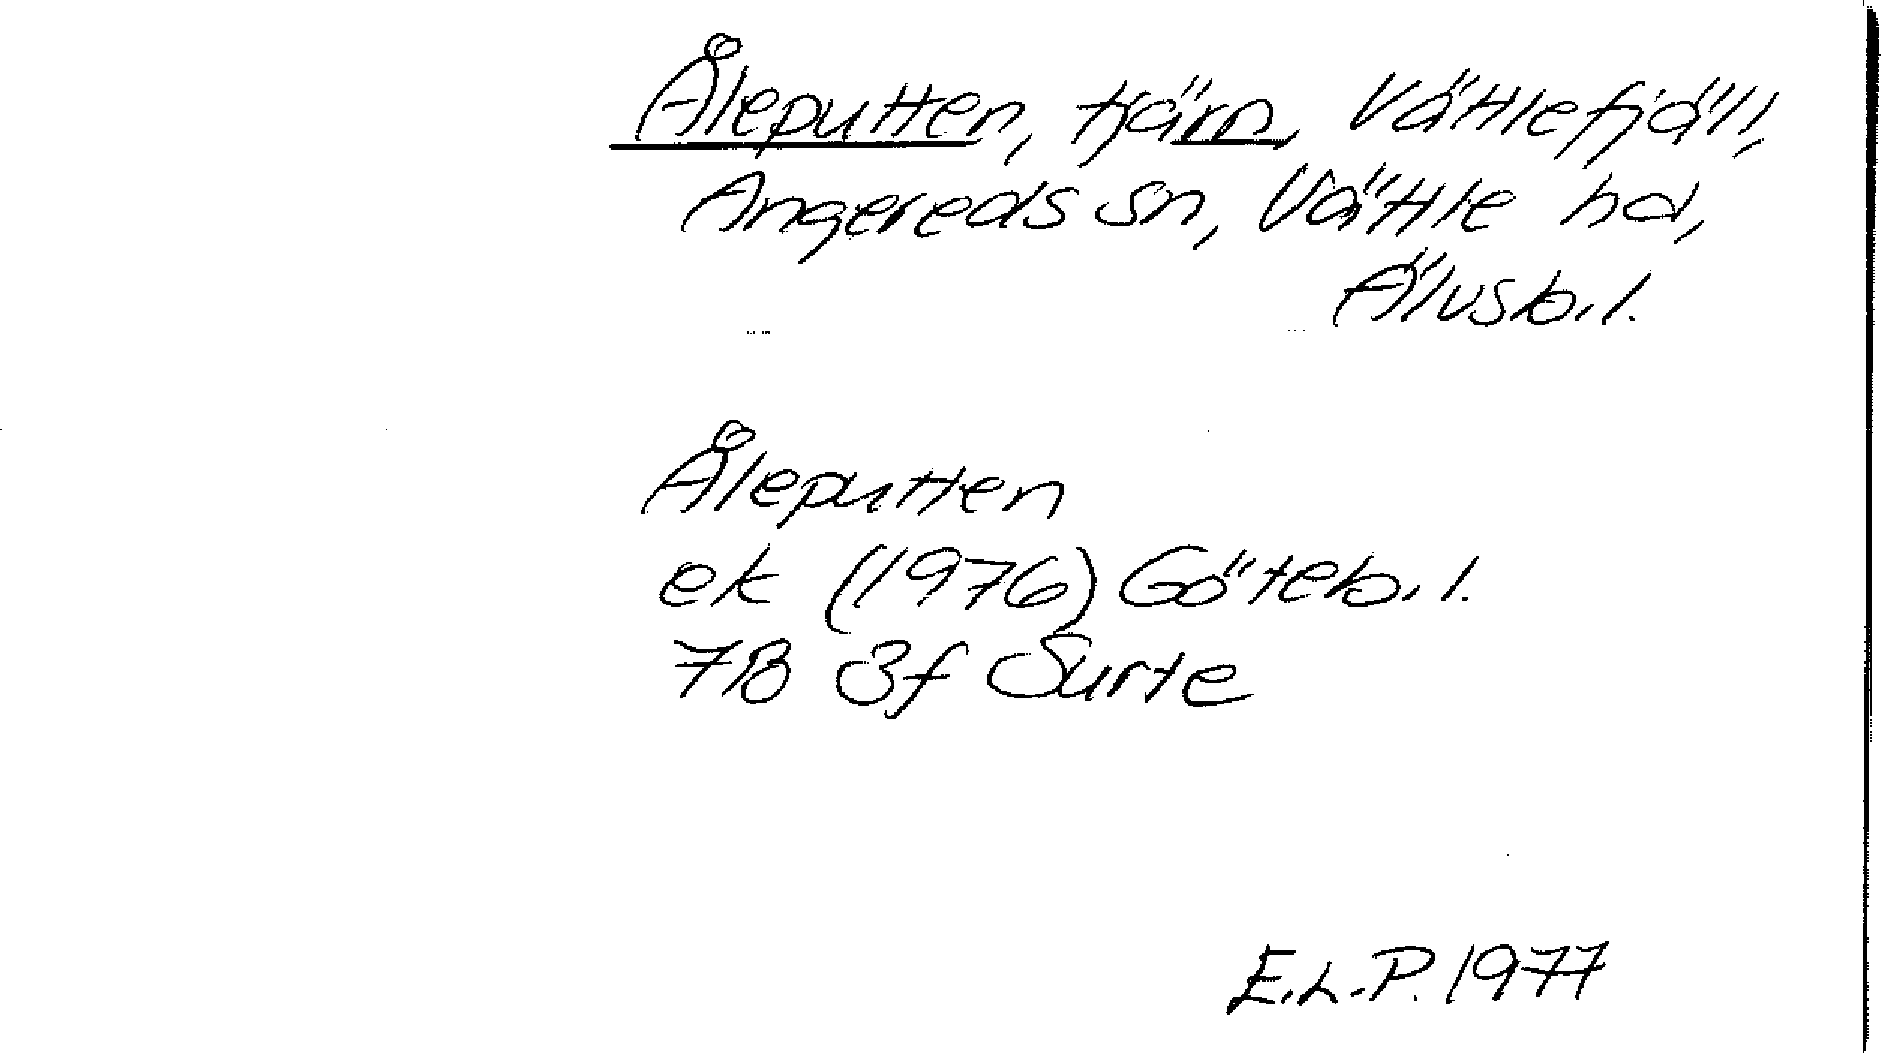 Åleputten, tjärn, Vättlefjäll,
Angereds sn, Vättle hd,
Älvsb.l.
Åleputten
ek (1976) Göteb.l.
7B 3f Surte
E.L-P. 1977